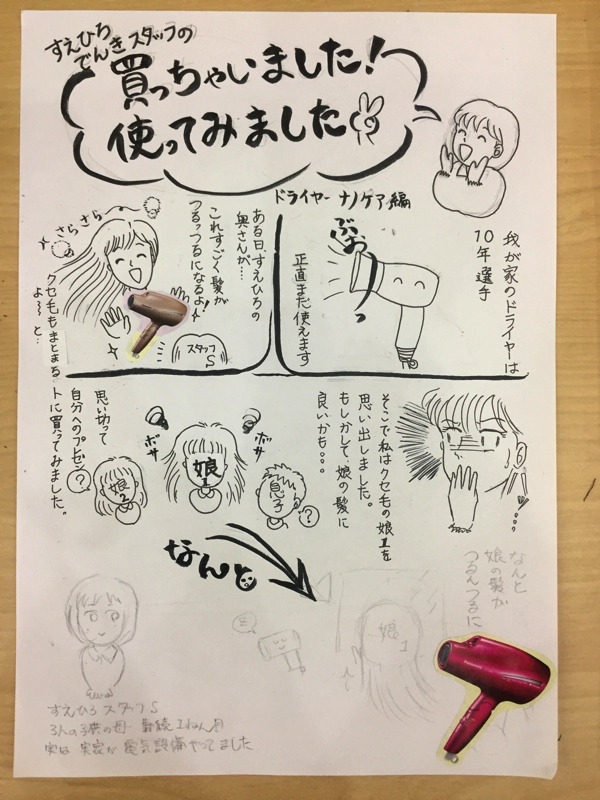 すえひろ
でんきスタッフの
買っちゃいました!
使ってみました
ドライヤー ナノケア編
我が家のドライヤーは
10年選手
ぶぉー
正直まだ使えます
ある日、すえひろの
奥さんが…
これすごく髪が
つるっつるになるよ!
さらさら〜
クセ毛もまとまる
よ〜と…
スタッフ
S
そこで私はクセ毛の娘1を
思い出しました。
もしかして、娘の髪に
良いかも…
ボサ
ボサ
娘1
娘2
息子
?
?
思い切って
自分へのプレゼン
トに買ってみました。
なんと
なんと
娘の髪が
つるんつるに
娘1
すえひろ スタッフS
3人の子供の母 勤続
実は 実家が 電気設備やってました